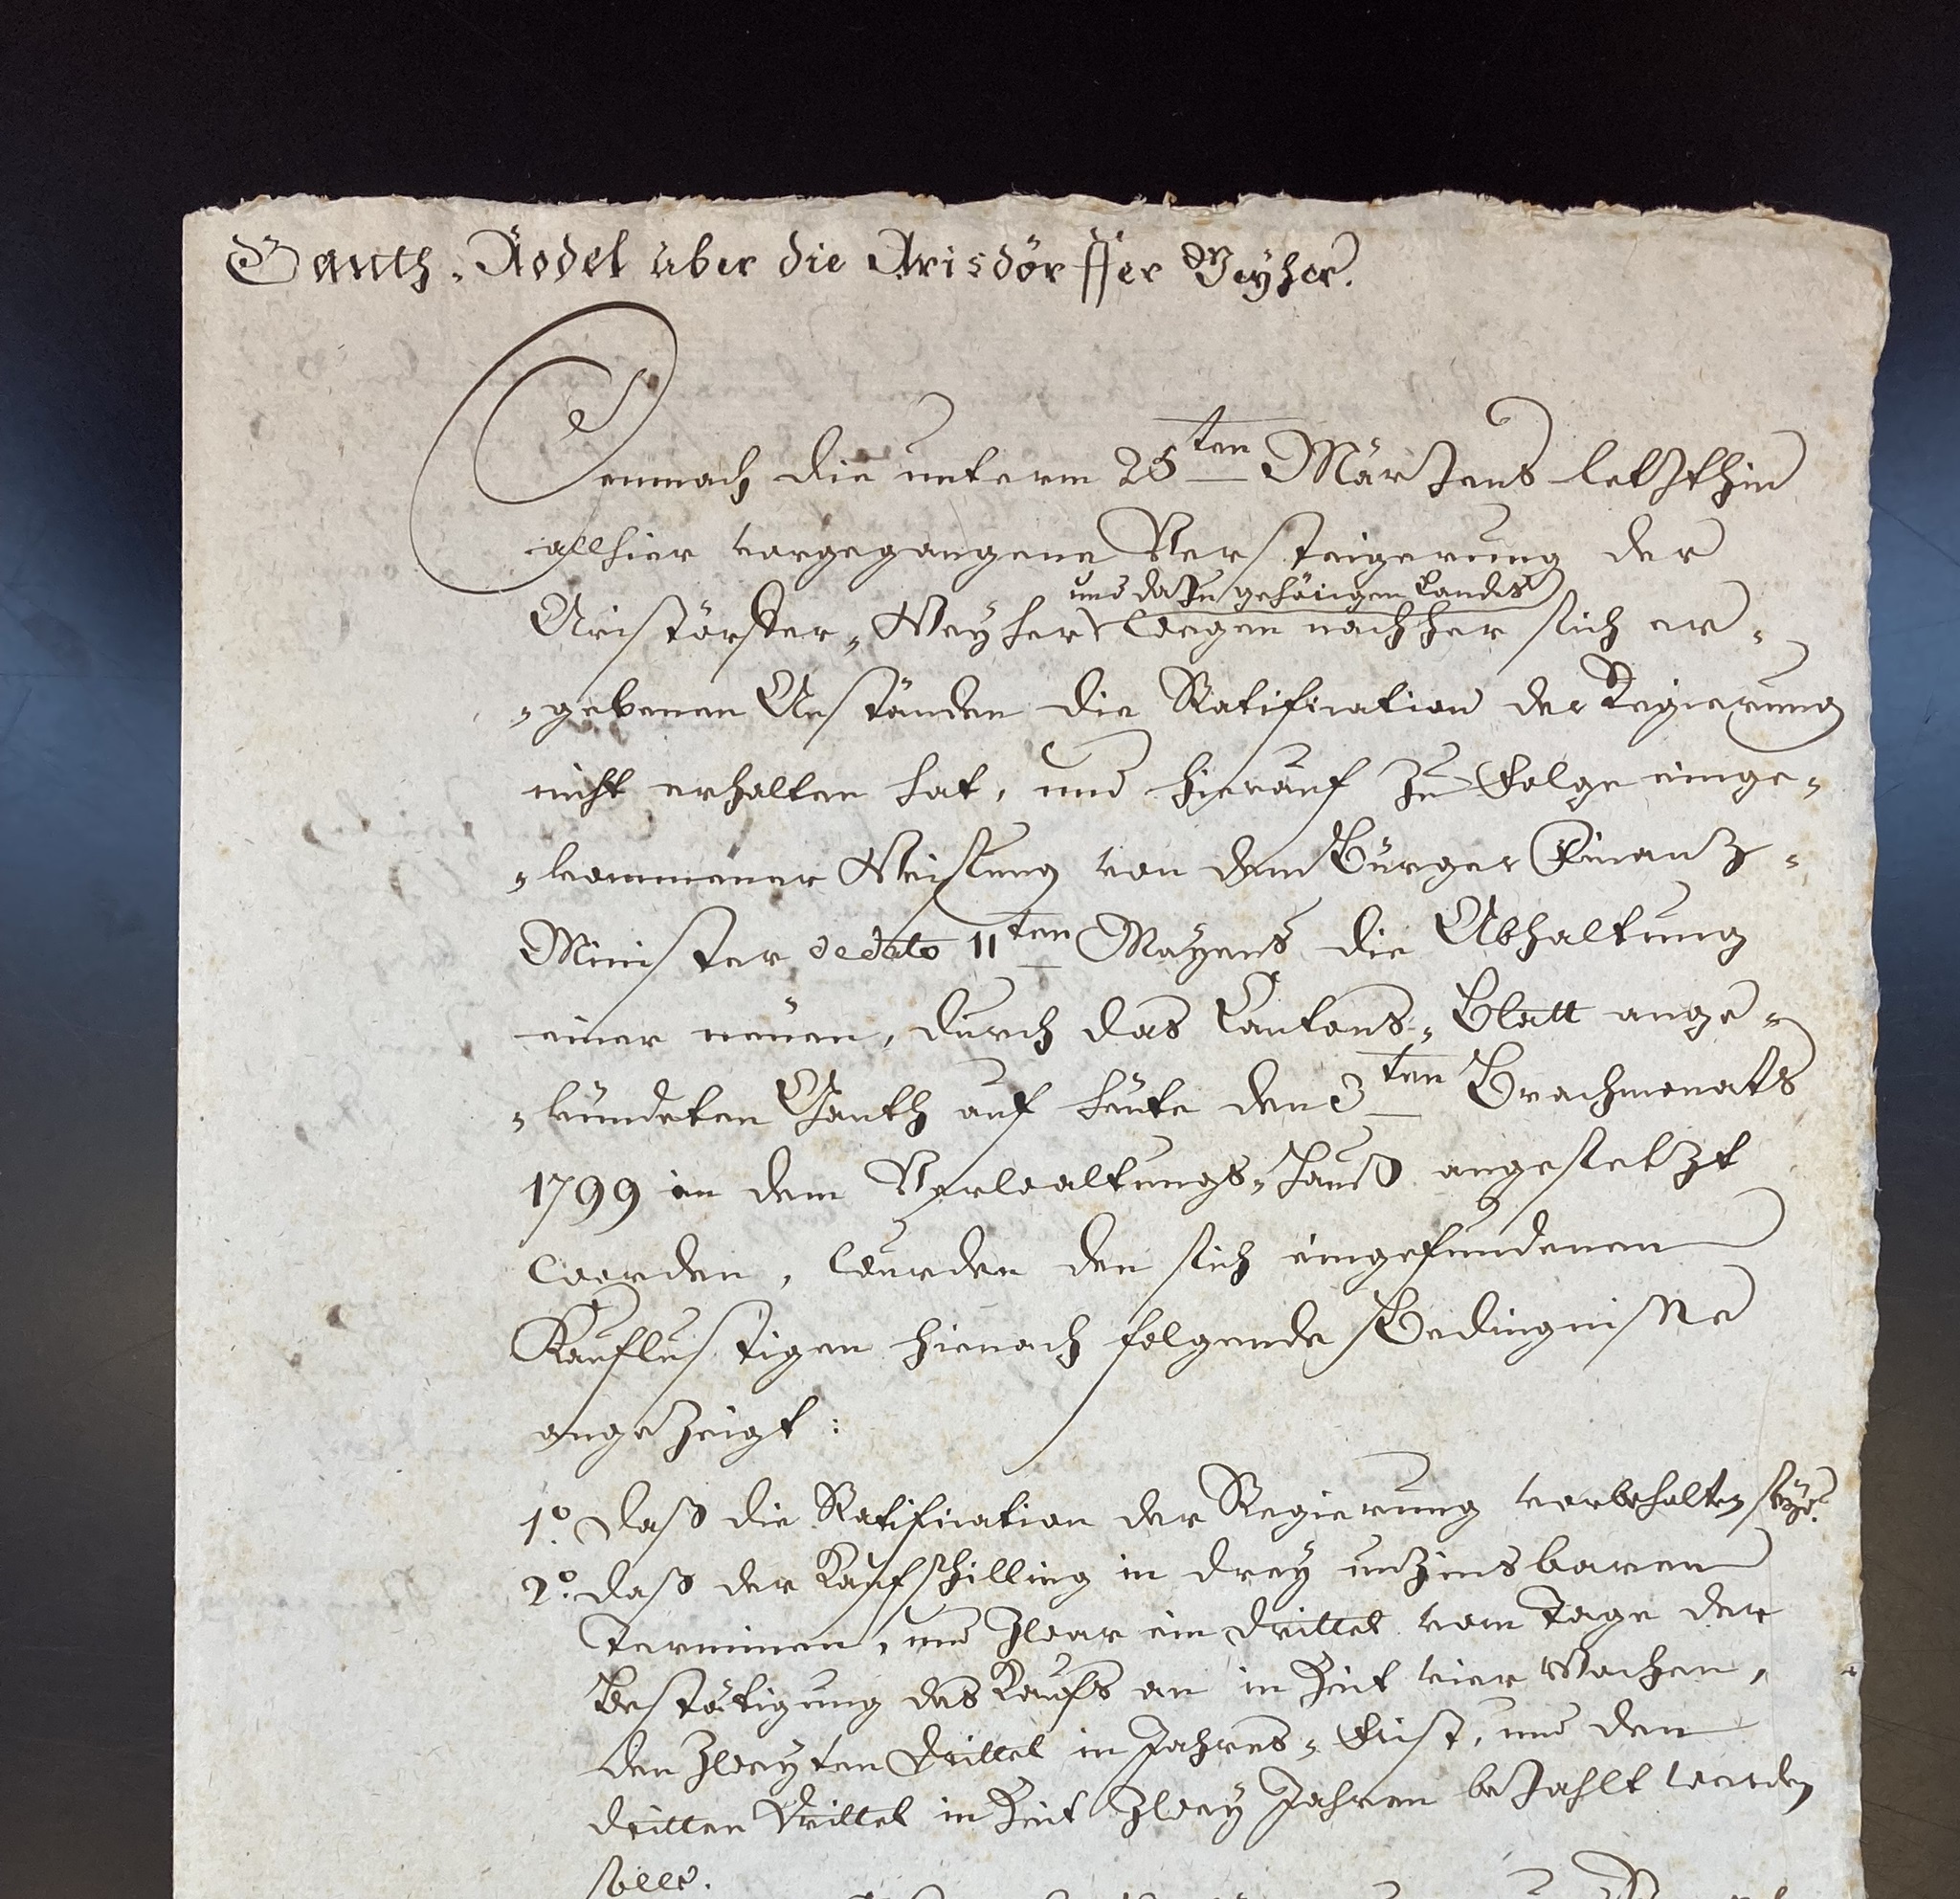 Ganth-Rodel über die Arisdörffer Weyher.
Demnach die unterm 25ten Märzens letsthin
allhier vorgegangene Versteigerung der
und dazu gehörigen Landes
Aristörffer-Weyher wegen nachher sich er-
-gebenen Anständen die Ratification der Regierung
nicht erhalten hat, und hierauf zu Folge einge-
-kommener Weisung von dem Bürger Finanz-
Minister de dato 11ten Mayens die Abhaltung
einer neüen, durch das Cantons-Blatt ange-
-kündeten Ganth auf heute den 3ten Brachmonats
1799 in dem Verwaltungs-Hauß angesetzt
worden, wurden den sich eingefundenen
Kauflustigen hienach folgende Bedingnisse
angezeigt:
1o. Daß die Ratification der Regierung vorbehalten seye.
2o. daß der Kaufschilling in drey unzinsbaren
Terminen, und zwar ein Drittel vom Tage der
Bestätigung des Kaufs an in Zeit vier Wochen,
den zweyten Drittel in Jahres-Frist, und den
dritten Drittel in Zeit zwey Jahren bezahlt werden
solle.